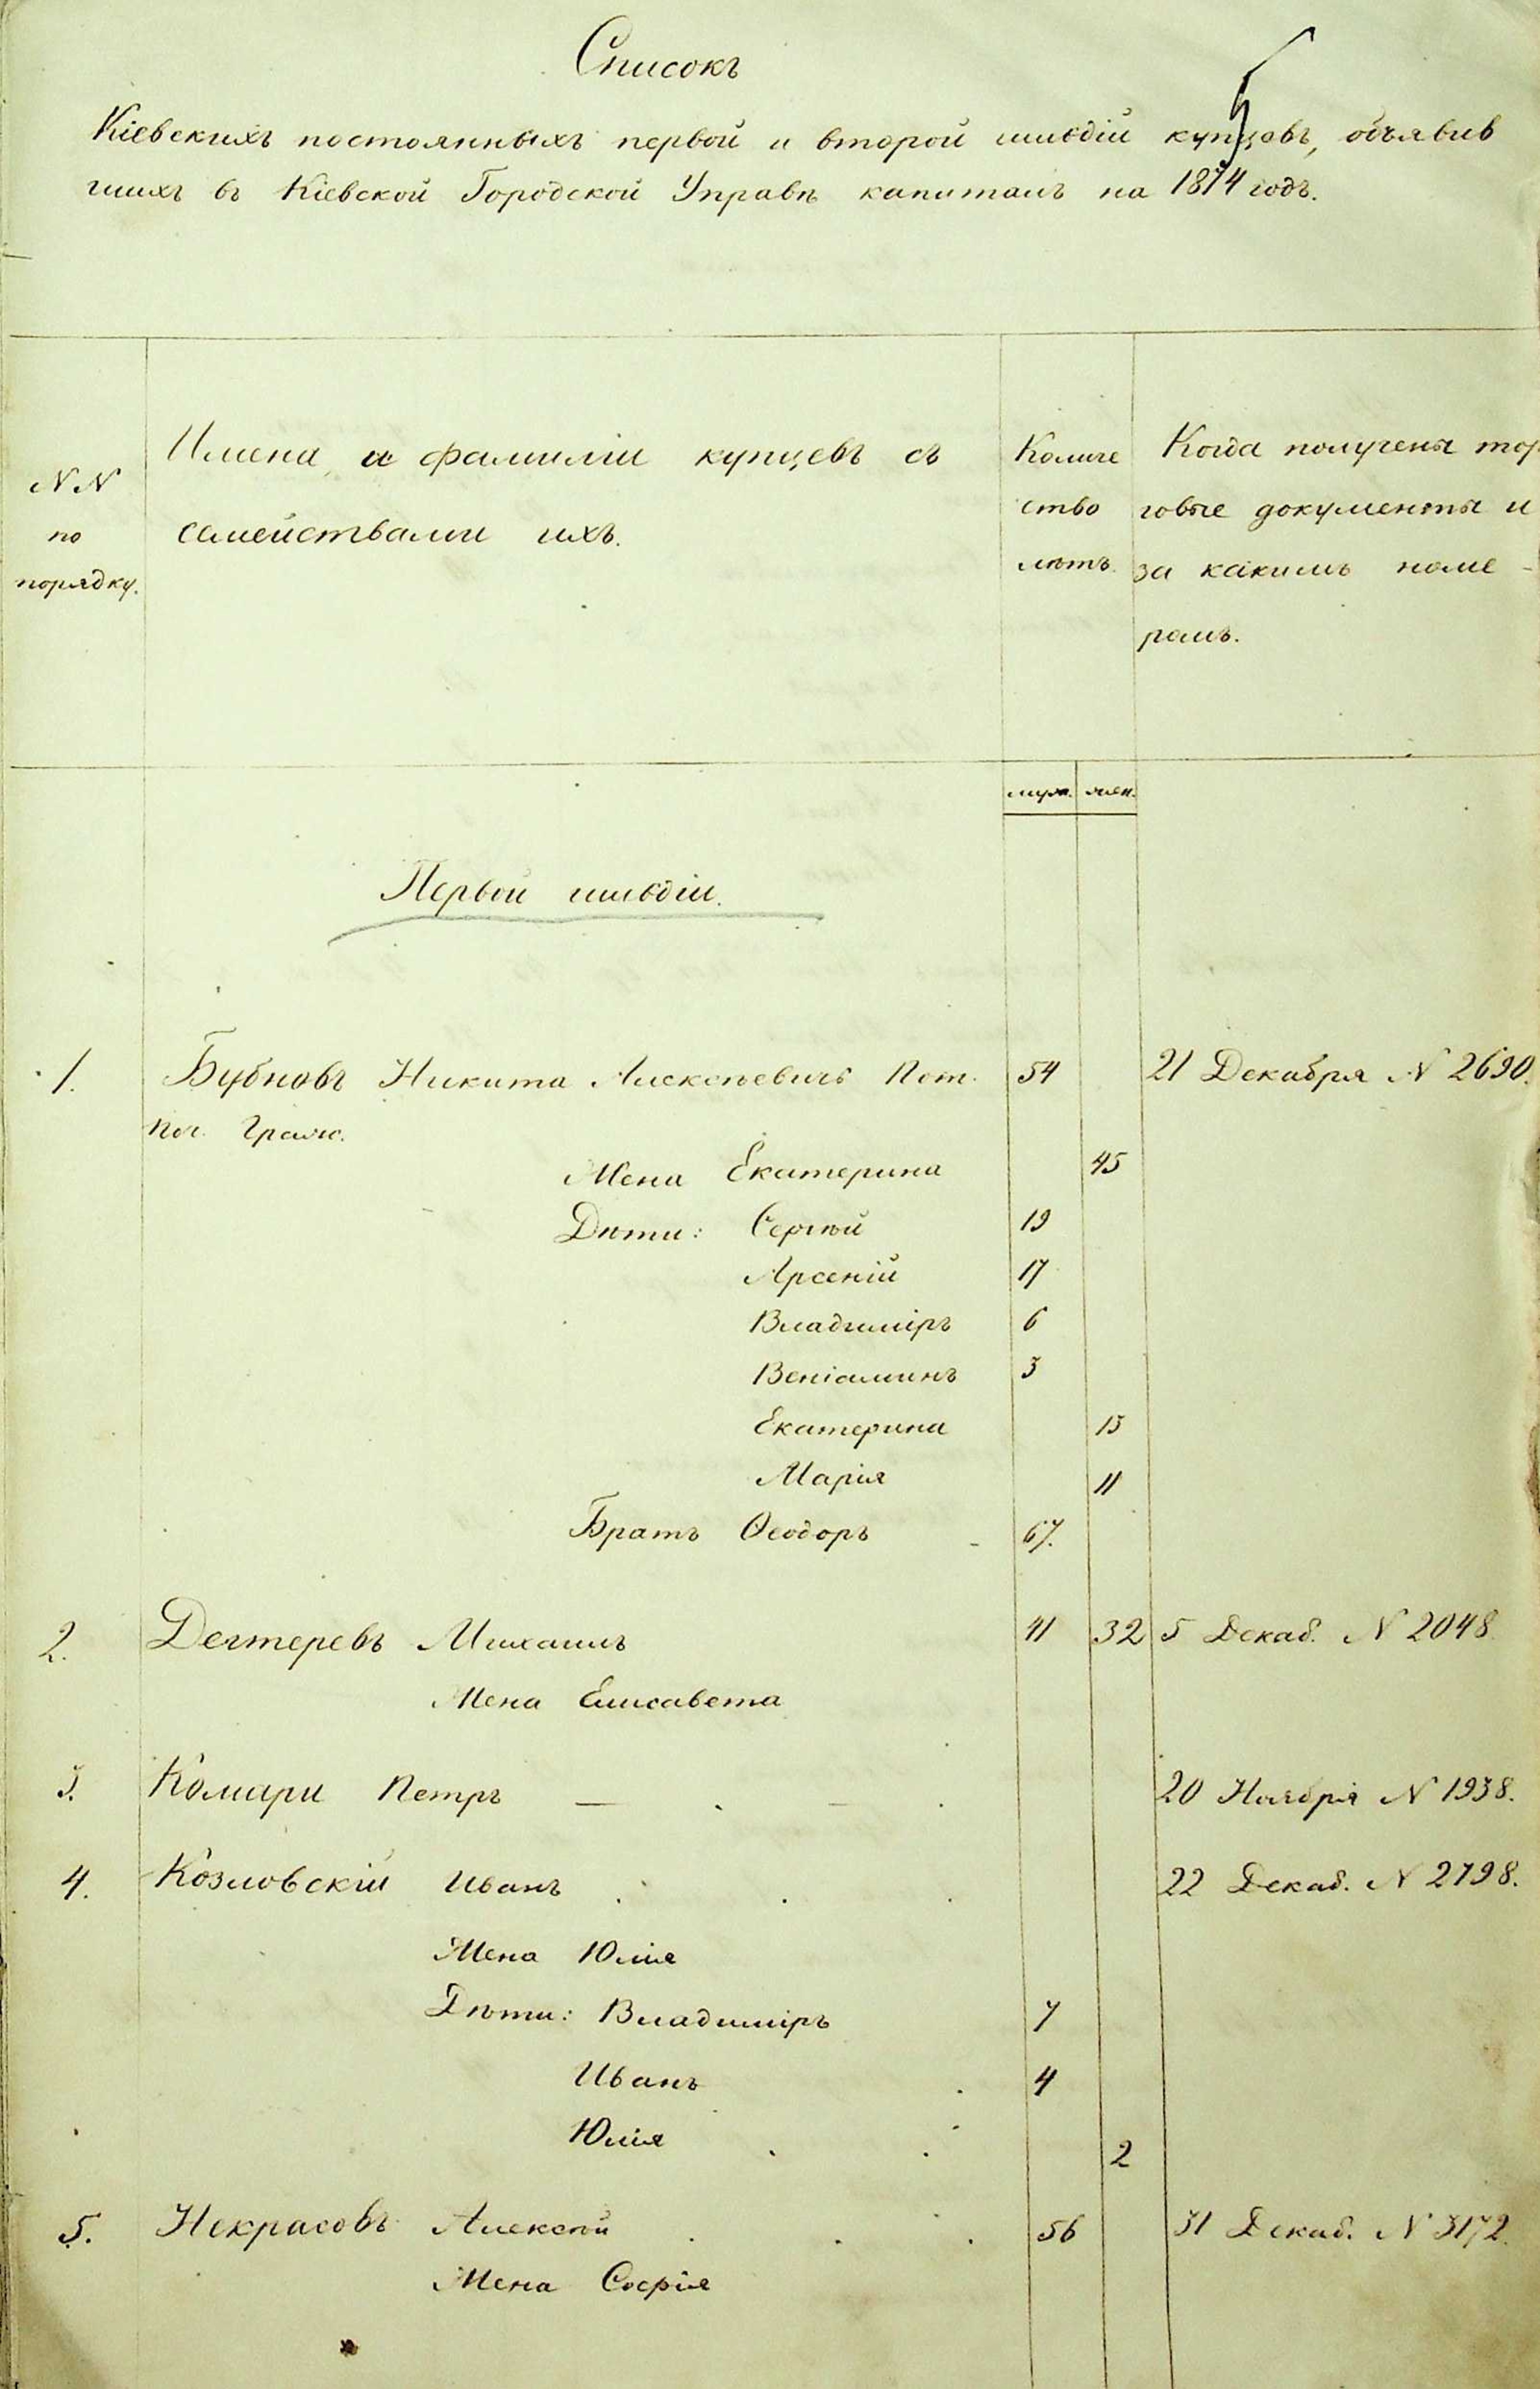 Списокъ
Кіевскихъ постоянныхъ первой и второй гильдіи купцовъ, объявив
шихъ въ Кіевской Городской Управѣ капиталъ на 1874 годъ.
NN
по
порядку.
Имена и фамиліи купцевъ съ
семействами ихъ.
Количе
ство
лѣтъ.
Когда получены тор
говые документы и
за какимъ номе-
ромъ.
муж. жен.
Первой гильдіи.
1. Бубновъ Никита Алексѣевичъ Пот. 54 21 Декабря N 2690.
Поч. Гражд.
Жена Екатерина 45
Дѣти: Сергѣй 19
Арсеній 17
Владиміръ 6
Веніаминъ 3
Екатерина 13
Марія 11
Братъ Ѳеодоръ - 67.
2. Дегтеревъ Михаилъ 41 32 5 Декаб. N 2048
Жена Елисавета
3. Комари Петръ — . — . 20 Ноября N 1938.
4. Козловскій Иванъ . . . 22 Декаб. N 2798.
Жена Юлія
Дѣти: Владиміръ 7
Иванъ . 4
Юлія . . 2
5. Некрасовъ Алексѣй . . . 56 31 Декаб. N 3172.
Жена Софія